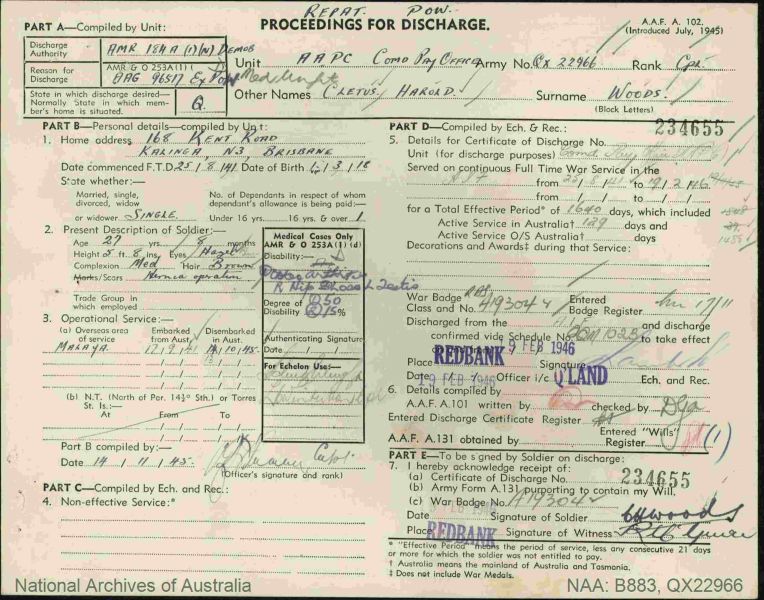 REPAT. POW.
PART A—Compiled by Unit:
PROCEEDINGS FOR DISCHARGE.
A.A.F. A. 102.
(Introduced July, 1945)
Discharge Authority
AMR 184A (1)(N) DEMOB
Reason for Discharge
AMR & O 253A(1)( )
AAG 96517 Ex POW
State in which discharge desired—Normally State in which member's home is situated.
Q
Unit AAPC Comd Pay Office
Army No. QX 22966
Rank Cpl
Other Names CLETUS HAROLD.
Surname WOODS.
(Block Letters)
PART B—Personal details—compiled by Unit:
1. Home address 168 KENT ROAD
KALINGA, N3, BRISBANE
Date commenced F.T.D. 25/8/41 Date of Birth 1/3/18
State whether:—
Married, single, divorced, widow or widower SINGLE
No. of Dependants in respect of whom dependant's allowance is being paid:—
Under 16 yrs. 16 yrs. & over
2. Present Description of Soldier:—
Age 27 yrs. 8 months
Height 5 ft. 8 ins. Eyes Hazel
Complexion Med Hair Brown
Marks/Scars Hernia operation
Trade Group in which employed
Medical Cases Only
AMR & O 253A(1) (d)
Disability:—
Degree of Disability
Authenticating Signature
Date / /
For Echelon Use:—
3. Operational Service:—
(a) Overseas area of service
Embarked from Aust.
Disembarked in Aust.
MALAYA 10.45.
(b) N.T. (North of Par. 14½° Sth.) or Torres St. Is.:—
At From To
Part B compiled by:—
Date 14/11/45.
Capt
(Officer's signature and rank)
PART C—Compiled by Ech. and Rec.:
4. Non-effective Service:*
PART D—Compiled by Ech. & Rec.:
234655
5. Details for Certificate of Discharge No.
Unit (for discharge purposes)
Served on continuous Full Time War Service in the
AIF
from 25/8/41 to 19/2/46
for a Total Effective Period* of 1640 days, which included
Active Service in Australia† 129 days and
Active Service O/S Australia† days
Decorations and Awards‡ during that Service:
War Badge RAS
Class and No. A193042
Entered Badge Register 17/11
Discharged from the AIF and discharge
confirmed vide Schedule No. to take effect
9 FEB 1946
REDBANK
Place Signature
Date 19 FEB 1946 Officer i/c Q'LAND Ech. and Rec.
6. Details compiled by
A.A.F. A.101 written by checked by
Entered Discharge Certificate Register
A.A.F. A.131 obtained by
Entered "Wills" Register (1)
PART E—To be signed by Soldier on discharge:
7. I hereby acknowledge receipt of:
(a) Certificate of Discharge No. 234655
(b) Army Form A.131 purporting to contain my Will,
(c) War Badge No. A193042
Date Signature of Soldier CHWoods
Place REDBANK Signature of Witness
* "Effective Period" means the period of service, less any consecutive 21 days or more for which the soldier was not entitled to pay.
† Australia means the mainland of Australia and Tasmania.
‡ Does not include War Medals.
National Archives of Australia
NAA: B883, QX22966